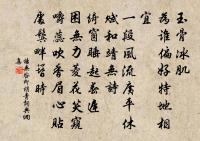 玉骨冰肌
為誰偏好特地相
宜
一段風流廣平休
賦和靖無詩
綺窗睡起春遲
困無力菱花笑窺
嚼蕊吹香眉心貼
處鬢畔簪時